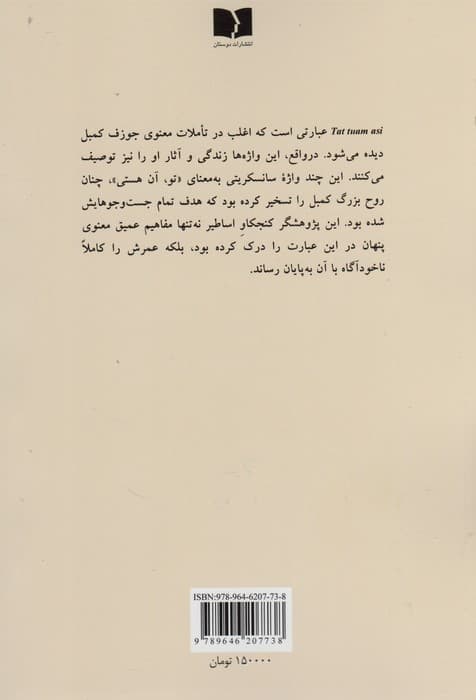 انتشارات دوستان
Tat tuam asi عبارتی است که اغلب در تأملات معنوی جوزف کمبل
دیده می‌شود. درواقع، این واژه‌ها زندگی و آثار او را نیز توصیف
می‌کنند. این چند واژهٔ سانسکریتی به‌معنای «تو، آن هستی»، چنان
روح بزرگ کمبل را تسخیر کرده بود که هدف تمام جست‌وجوهایش
شده بود. این پژوهشگر کنجکاوِ اساطیر نه‌تنها مفاهیم عمیق معنوی
پنهان در این عبارت را درک کرده بود، بلکه عمرش را کاملاً
ناخودآگاه با آن به‌پایان رساند.
ISBN:978-964-6207-73-8
9 789646 207738
۱۵۰۰۰۰ تومان